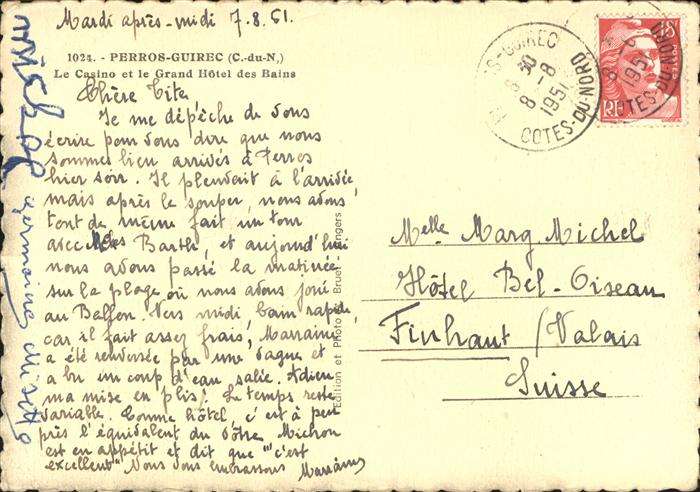 Mardi après-midi 7.8.51.
1024. - PERROS-GUIREC (C.-du-N.)
Le Casino et le Grand Hôtel des Bains
Chère Tite,
Je me dépêche de vous
écrire pour vous dire que nous
sommes bien arrivés à Perros
hier soir. Il pleuvait à l'arrivée,
mais après le souper, nous avons
tout de même fait un tour
avec Mlles Barth, et aujourd'hui
nous avons passé la matinée
sur la plage où nous avons joué
au Ballon. Vers midi bain rapide,
car il fait assez frais, Marraine
a été renversée par une vague et
a bu un coup d'eau salée. Adieu
ma mise en plis! Le temps reste
variable. Comme hôtel, c'est à peu
près l'équivalent du vôtre Michou
est en appétit et dit que "c'est
excellent" Nous vous embrassons Marraine
Edition et Photo Bruel - Angers
PERROS-GUIREC
8 H 30
8-8
1951
COTES-DU-NORD
18F
POSTES
RF
1951
COTES-DU-NORD
Melle Marg. Michel
Hôtel Bel-Oiseau
Finhaut /Valais
Suisse